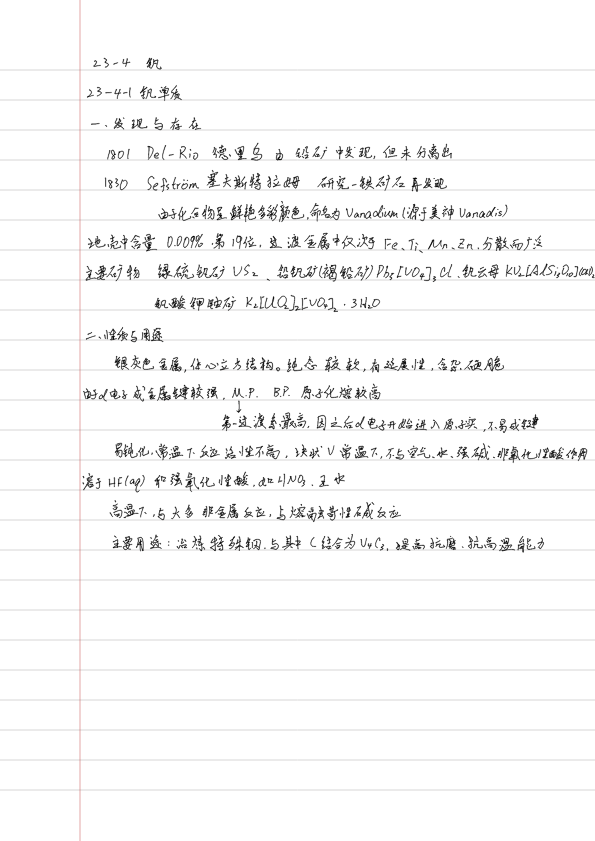 23-4 钒
23-4-1 钒单质
一、发现与存在
1801 Del-Rio 德·里乌 由 铅矿 中发现，但未分离出
1830 Sefström 塞夫斯特拉姆 研究一铁矿石再发现
由于化合物呈鲜艳多彩颜色，命名为 Vanadium (源于美神 Vanadis)
地壳中含量 0.009% 第19位，过渡金属中仅次于 Fe、Ti、Mn、Zn，分散而广泛
主要矿物 绿硫钒矿 VS2、铅钒矿(褐铅矿) Pb5[VO4]3Cl、钒云母 KV2[AlSi3O10](OH)2
钒酸钾铀矿 K2[UO2]2[VO4]2·3H2O
二、性质与用途
银灰色金属，体心立方结构。纯态较软，有延展性，含杂硬脆
由于d电子成金属键较强，M.P. B.P. 原子化焓较高
↓
第一过渡系最高，因之后d电子开始进入原子实，不易成键
易钝化，常温下反应活性不高，块状V常温下，不与空气、水、强碱、非氧化性酸作用
溶于HF(aq) 和强氧化性酸，如HNO3、王水
高温下，与大多非金属反应，与熔融苛性碱反应
主要用途：冶炼特殊钢，与其中C结合为V4C3，提高抗磨、抗高温能力